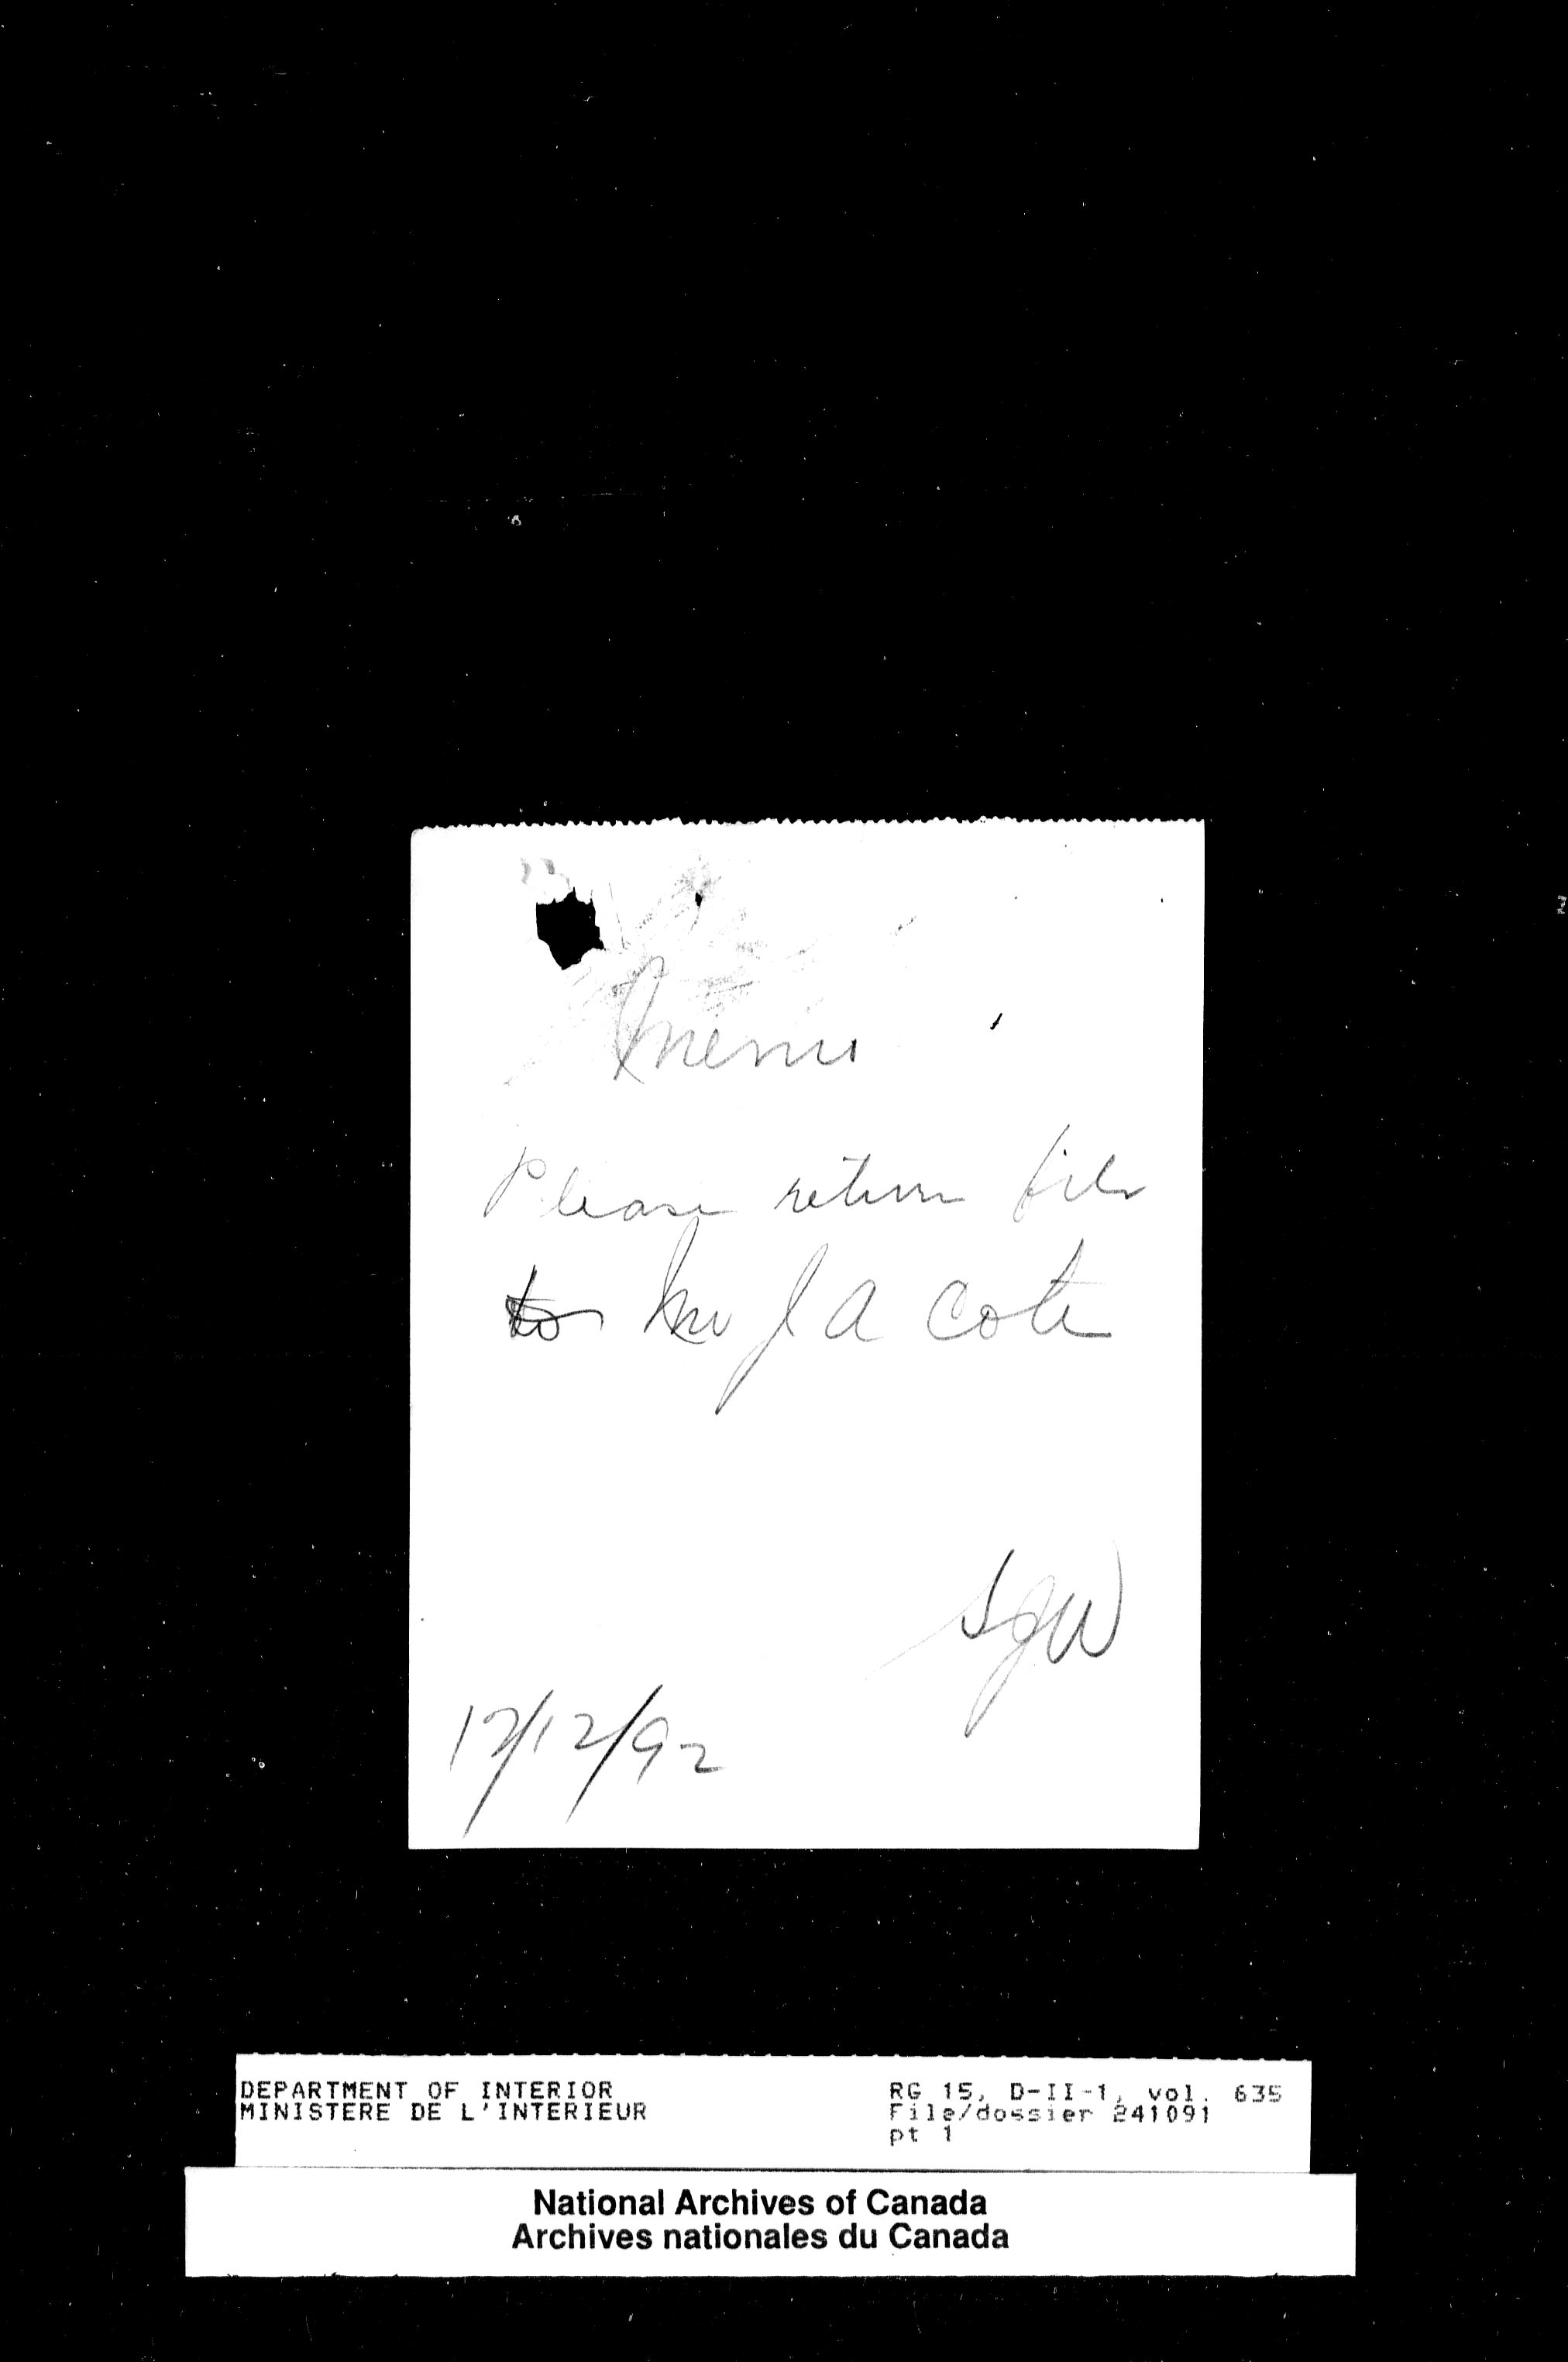 Memo
Please return file
to Mr J A Cote
SGW
17/12/92
DEPARTMENT OF INTERIOR
MINISTERE DE L'INTERIEUR
RG 15, D-II-1, vol. 635
File/dossier 241091
pt 1
National Archives of Canada
Archives nationales du Canada